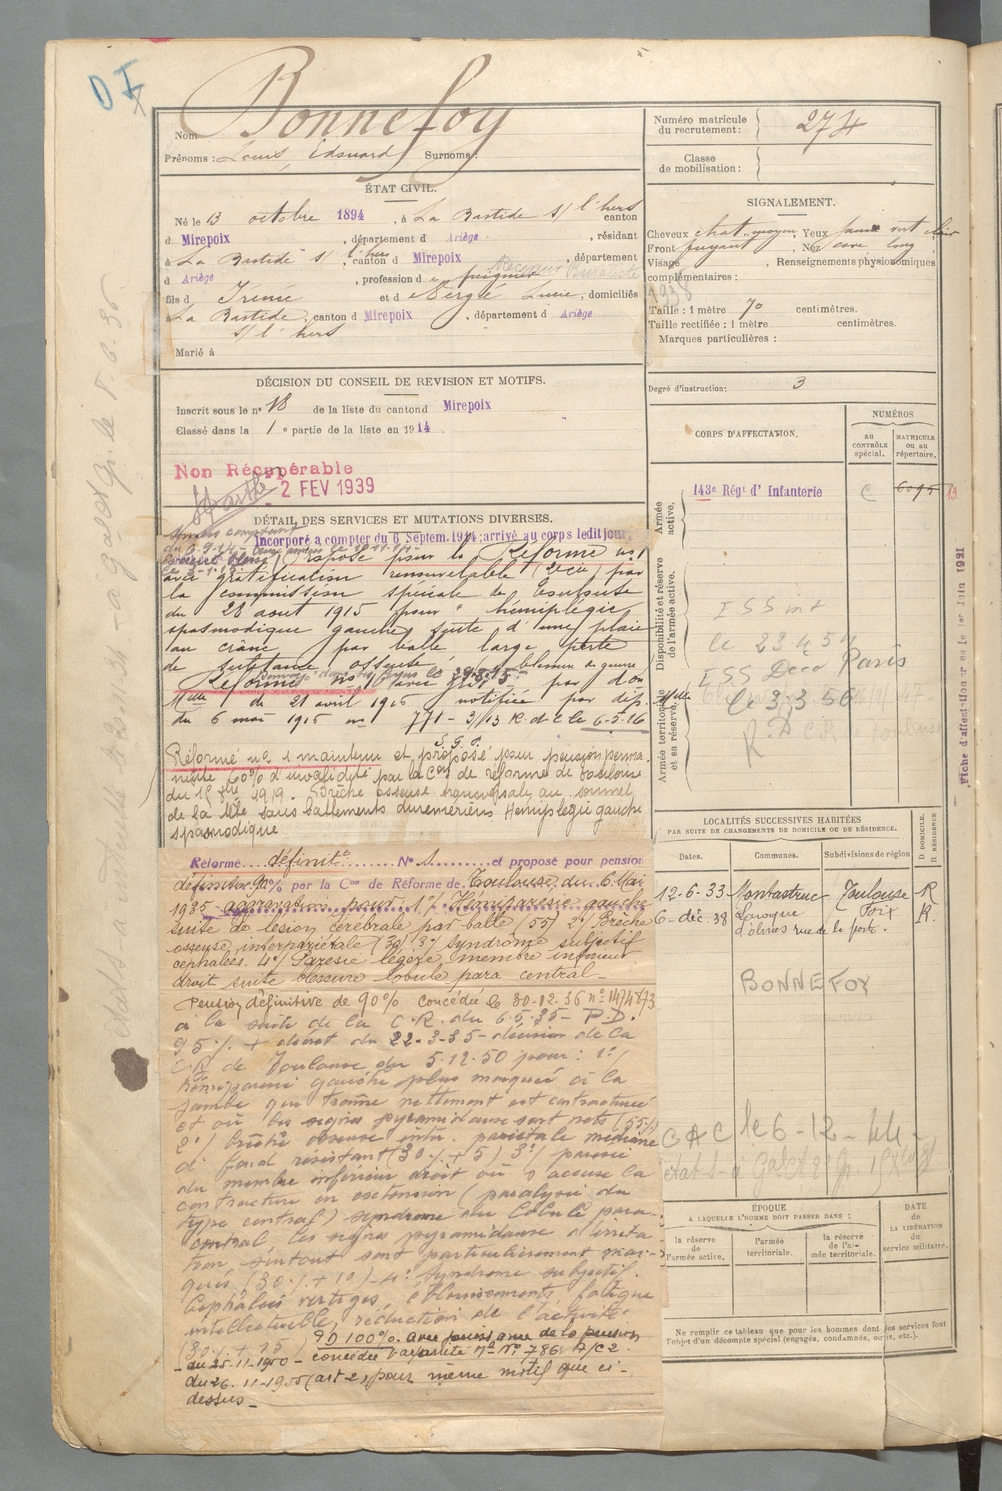 D I
Nom Bonnefoy
Prénoms : Louis, Edouard Surnoms :
ÉTAT CIVIL.
Né le 13 octobre 1894, à La Bastide s/ l'hers canton
d Mirepoix, département d Ariège, résidant
à La Bastide s/ l'hers, canton d Mirepoix, département
d Ariège, profession de peignier Buraliste
fils d Irénée et d Lucie, domiciliés
à La Bastide s/ l'hers, canton d Mirepoix, département d Ariège
Marié à
DÉCISION DU CONSEIL DE REVISION ET MOTIFS.
Inscrit sous le n° 18 de la liste du canton d Mirepoix
Classé dans la 1e partie de la liste en 1914.
Non Récupérable
2 FEV 1939
DÉTAIL DES SERVICES ET MUTATIONS DIVERSES.
Incorporé à compter du 6 Septem. 1914; arrivé au corps ledit jour,
Proposé pour la Réforme n° 1
avec gratification renouvelable par
la Commission spéciale de Toulouse
du 28 aout 1915 pour " hémiplégie
spasmodique gauche, suite d'une plaie
au crâne par balle large perte
de substance osseuse, blessure de guerre
Réformé n° 1 avec grat. par don
Mlle du 21 avril 1916 notifiée par dép.
du 6 mai 1916 n° 771 - 3/13 R. d. c. le 6-5-16
Réformé n° 1 maintenu et proposé pour pension perma
nente 60% d'invalidité par la Con de réforme de Toulouse
du 15 1919. Brèche osseuse transversale au sommet
de la tête sans battements duremériens Hémiplégie gauche
spasmodique
Réformé définitt N° 1 et proposé pour pension
définitive 90% par la Con de Réforme de Toulouse du 6 Mai
1935 aggravation pour 1°/ Hémiparésie gauche
suite de lésion cérébrale par balle (55) 2°/ Brèche
osseuse interpariétale (30) 3°/ syndrome subjectif
cephalées. 4°/ Parésie légère membre inférieur
droit suite blessure lobule para central -
Pension définitive de 90% concédée le 30-12-36 n° 1474873
à la suite de la C.R. du 6.5.35 - P.D.
95% + décret du 22-3-35 - décision de la
C.R de Toulouse du 5.12.50 pour : 1°/
hémiparésie gauche plus marquée à la
jambe qui traîne nettement est contracturée
et où les signes pyramidaux sont nets (55%)
2°/ brèche osseuse inter. pariétale médiane
à fond résistant (30% + 5) 3°/ parésie
du membre inférieur droit où s'accuse la
contracture en extension (paralysie du
type central) syndrome du lobule para-
central les signes pyramidaux d'irrita-
tion surtout sont particulièrement mar-
qués (30% + 10) - 4° syndrome subjectif.
Céphalées vertiges, éblouissements, fatigue
intellectuelle, réduction de l'activité
(30% + 15) P D 100%. avec jouissance de la pension
- du 25-11-1950 - concédée par arrêté N° 786 A/C2
du 26. 11-1955 (art 2) pour même motif que ci-
dessus -
Numéro matricule du recrutement : 274
Classe de mobilisation :
SIGNALEMENT.
Cheveux chat. moyen Yeux vert clair
Front fuyant, Nez cave long
Visage, Renseignements physionomiques
complémentaires :
1938
Taille : 1 mètre 70 centimètres.
Taille rectifiée : 1 mètre centimètres.
Marques particulières :
Degré d'instruction : 3
CORPS D'AFFECTATION.
NUMÉROS
AU CONTRÔLE spécial.
MATRICULE ou au répertoire.
Armée active.
143e Régt d' Infanterie C 6095
Disponibilité et réserve de l'armée active.
Armée territoriale et sa réserve.
ESS int
le 23 4 54
ESS Paris
le 3/3 56
Fiche d'affectation créée le 1er Juin 1921
LOCALITÉS SUCCESSIVES HABITÉES
PAR SUITE DE CHANGEMENTS DE DOMICILE OU DE RÉSIDENCE.
Dates. Communes. Subdivisions de région D DOMICILE. R RÉSIDENCE
12-6-33 Montastruc Toulouse R
6-déc-38 Laroque d'olmes rue de la poste. Foix R.
BONNEFOY
CAC le 6-12-44-
ÉPOQUE
A LAQUELLE L'HOMME DOIT PASSER DANS :
la réserve de l'armée active.
l'armée territoriale.
la réserve de l'armée territoriale.
DATE de LA LIBÉRATION du service militaire.
Ne remplir ce tableau que pour les hommes dont les services font
l'objet d'un décompte spécial (engagés, condamnés, omis, etc.).